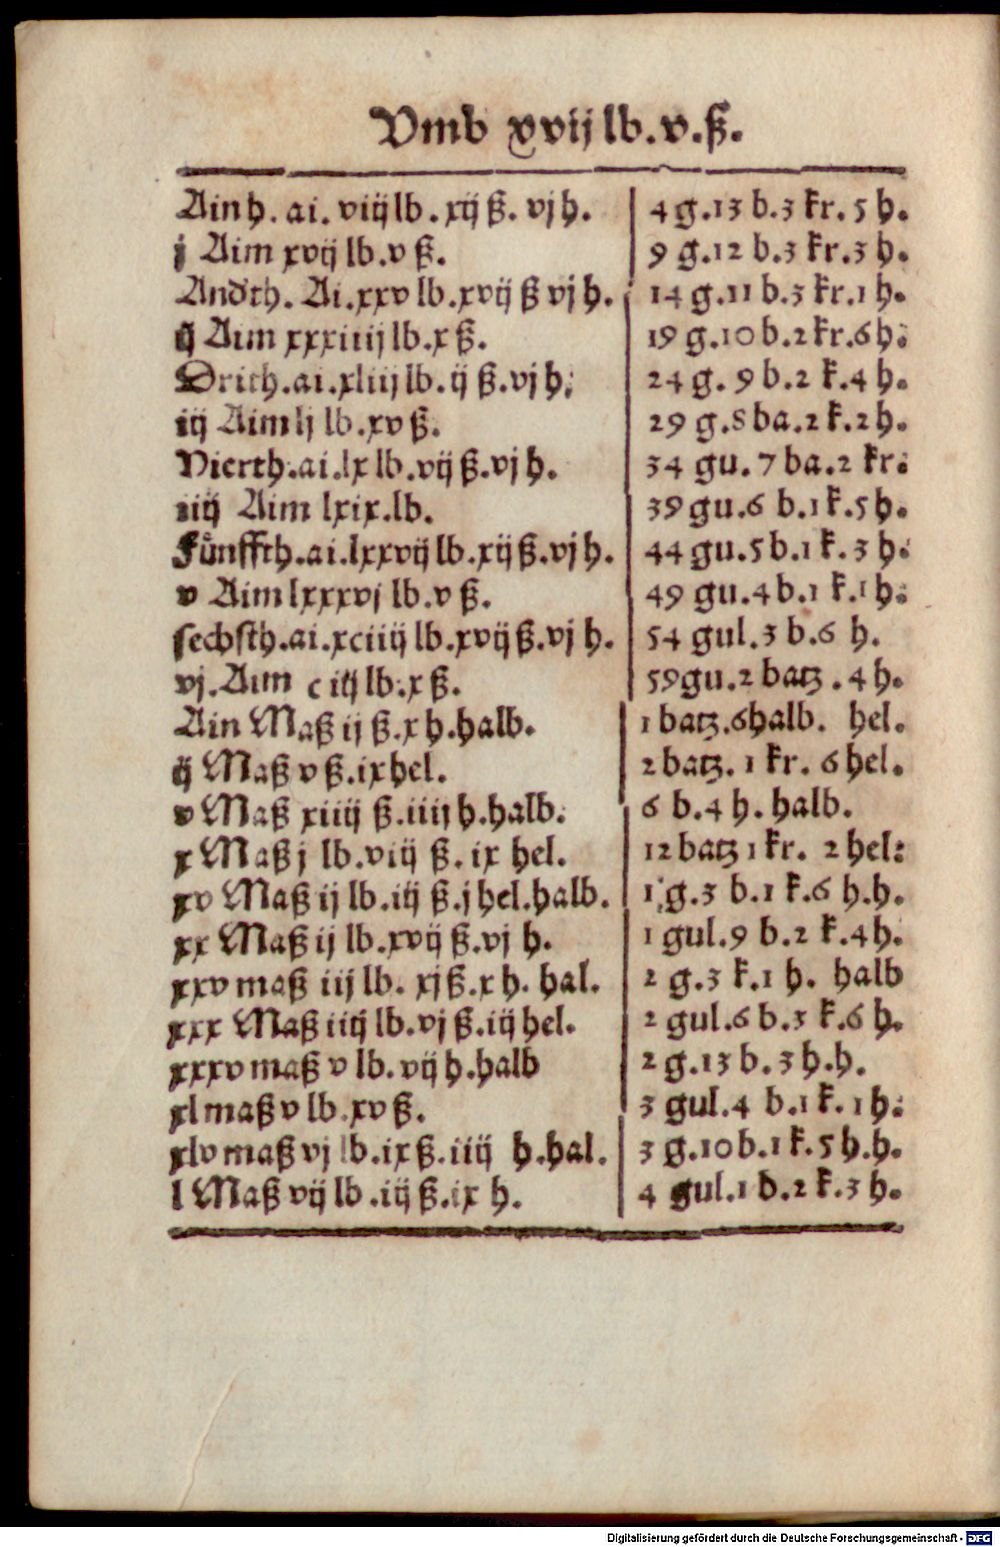 Vmb xvij lb.v.ß.
Ain h. ai. viij lb. xij ß. vj h. 4 g.13 b.3 kr. 5 h.
j Aim xvij lb.v ß. 9 g.12 b.3 kr.3 h.
Andrh. Ai.xxv lb.xvij ß vj h. 14 g.11 b.3 kr.1 h.
ij Aim xxxiiij lb.x ß. 19 g.10 b.2 kr.6 h.
Drith.ai.xliij lb.ij ß.vj h. 24 g. 9 b.2 k.4 h.
iij Aim lj lb.xv ß. 29 g.8 ba.2 k.2 h.
Vierth.ai.lx lb.vij ß.vj h. 34 gu. 7 ba.2 kr.
iiij Aim lxix.lb. 39 gu.6 b.1 k.5 h.
Fünffth.ai.lxxvij lb.xij ß.vj h. 44 gu.5 b.1 k.3 h.
v Aim lxxxvj lb.v ß. 49 gu.4 b.1 k.1 h.
sechsth.ai.xciiij lb.xvij ß.vj h. 54 gul.3 b.6 h.
vj.Aim ciij lb.x ß. 59 gu.2 batz.4 h.
Ain Maß ij ß.x h.halb. 1 batz.6halb. hel.
ij Maß v ß.ix hel. 2 batz. 1 kr. 6 hel.
v Maß xiiij ß.iiij h.halb. 6 b.4 h. halb.
x Maß j lb.viij ß. ix hel. 12 batz 1 kr. 2 hel.
xv Maß ij lb.iij ß.j hel.halb. 1 g.3 b.1 k.6 h.h.
xx Maß ij lb.xvij ß.vj h. 1 gul.9 b.2 k.4 h.
xxv maß iij lb. xj ß.x h. hal. 2 g.3 k.1 h. halb
xxx Maß iiij lb.vj ß.iij hel. 2 gul.6 b.3 k.6 h.
xxxv maß v lb.vij h.halb 2 g.13 b.3 h.h.
xl maß v lb.xv ß. 3 gul.4 b.1 k.1 h.
xlv maß vj lb.ix ß.iiij h.hal. 3 g.10 b.1 k.5 h.h.
l Maß vij lb.iij ß.ix h. 4 gul.1 b.2 k.3 h.
Digitalisierung gefördert durch die Deutsche Forschungsgemeinschaft - DFG